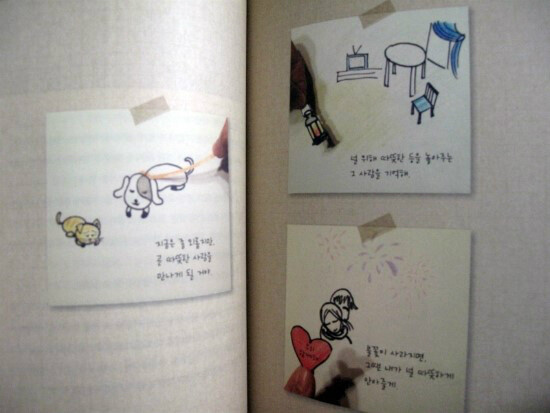 지금은 좀 외롭지만,
곧 따뜻한 사람을
만나게 될 거야.
널 위해 따뜻한 등을 놓아주는
그 사람을 기억해.
불꽃이 사라지면,
그땐 내가 널 따뜻하게
안아줄게